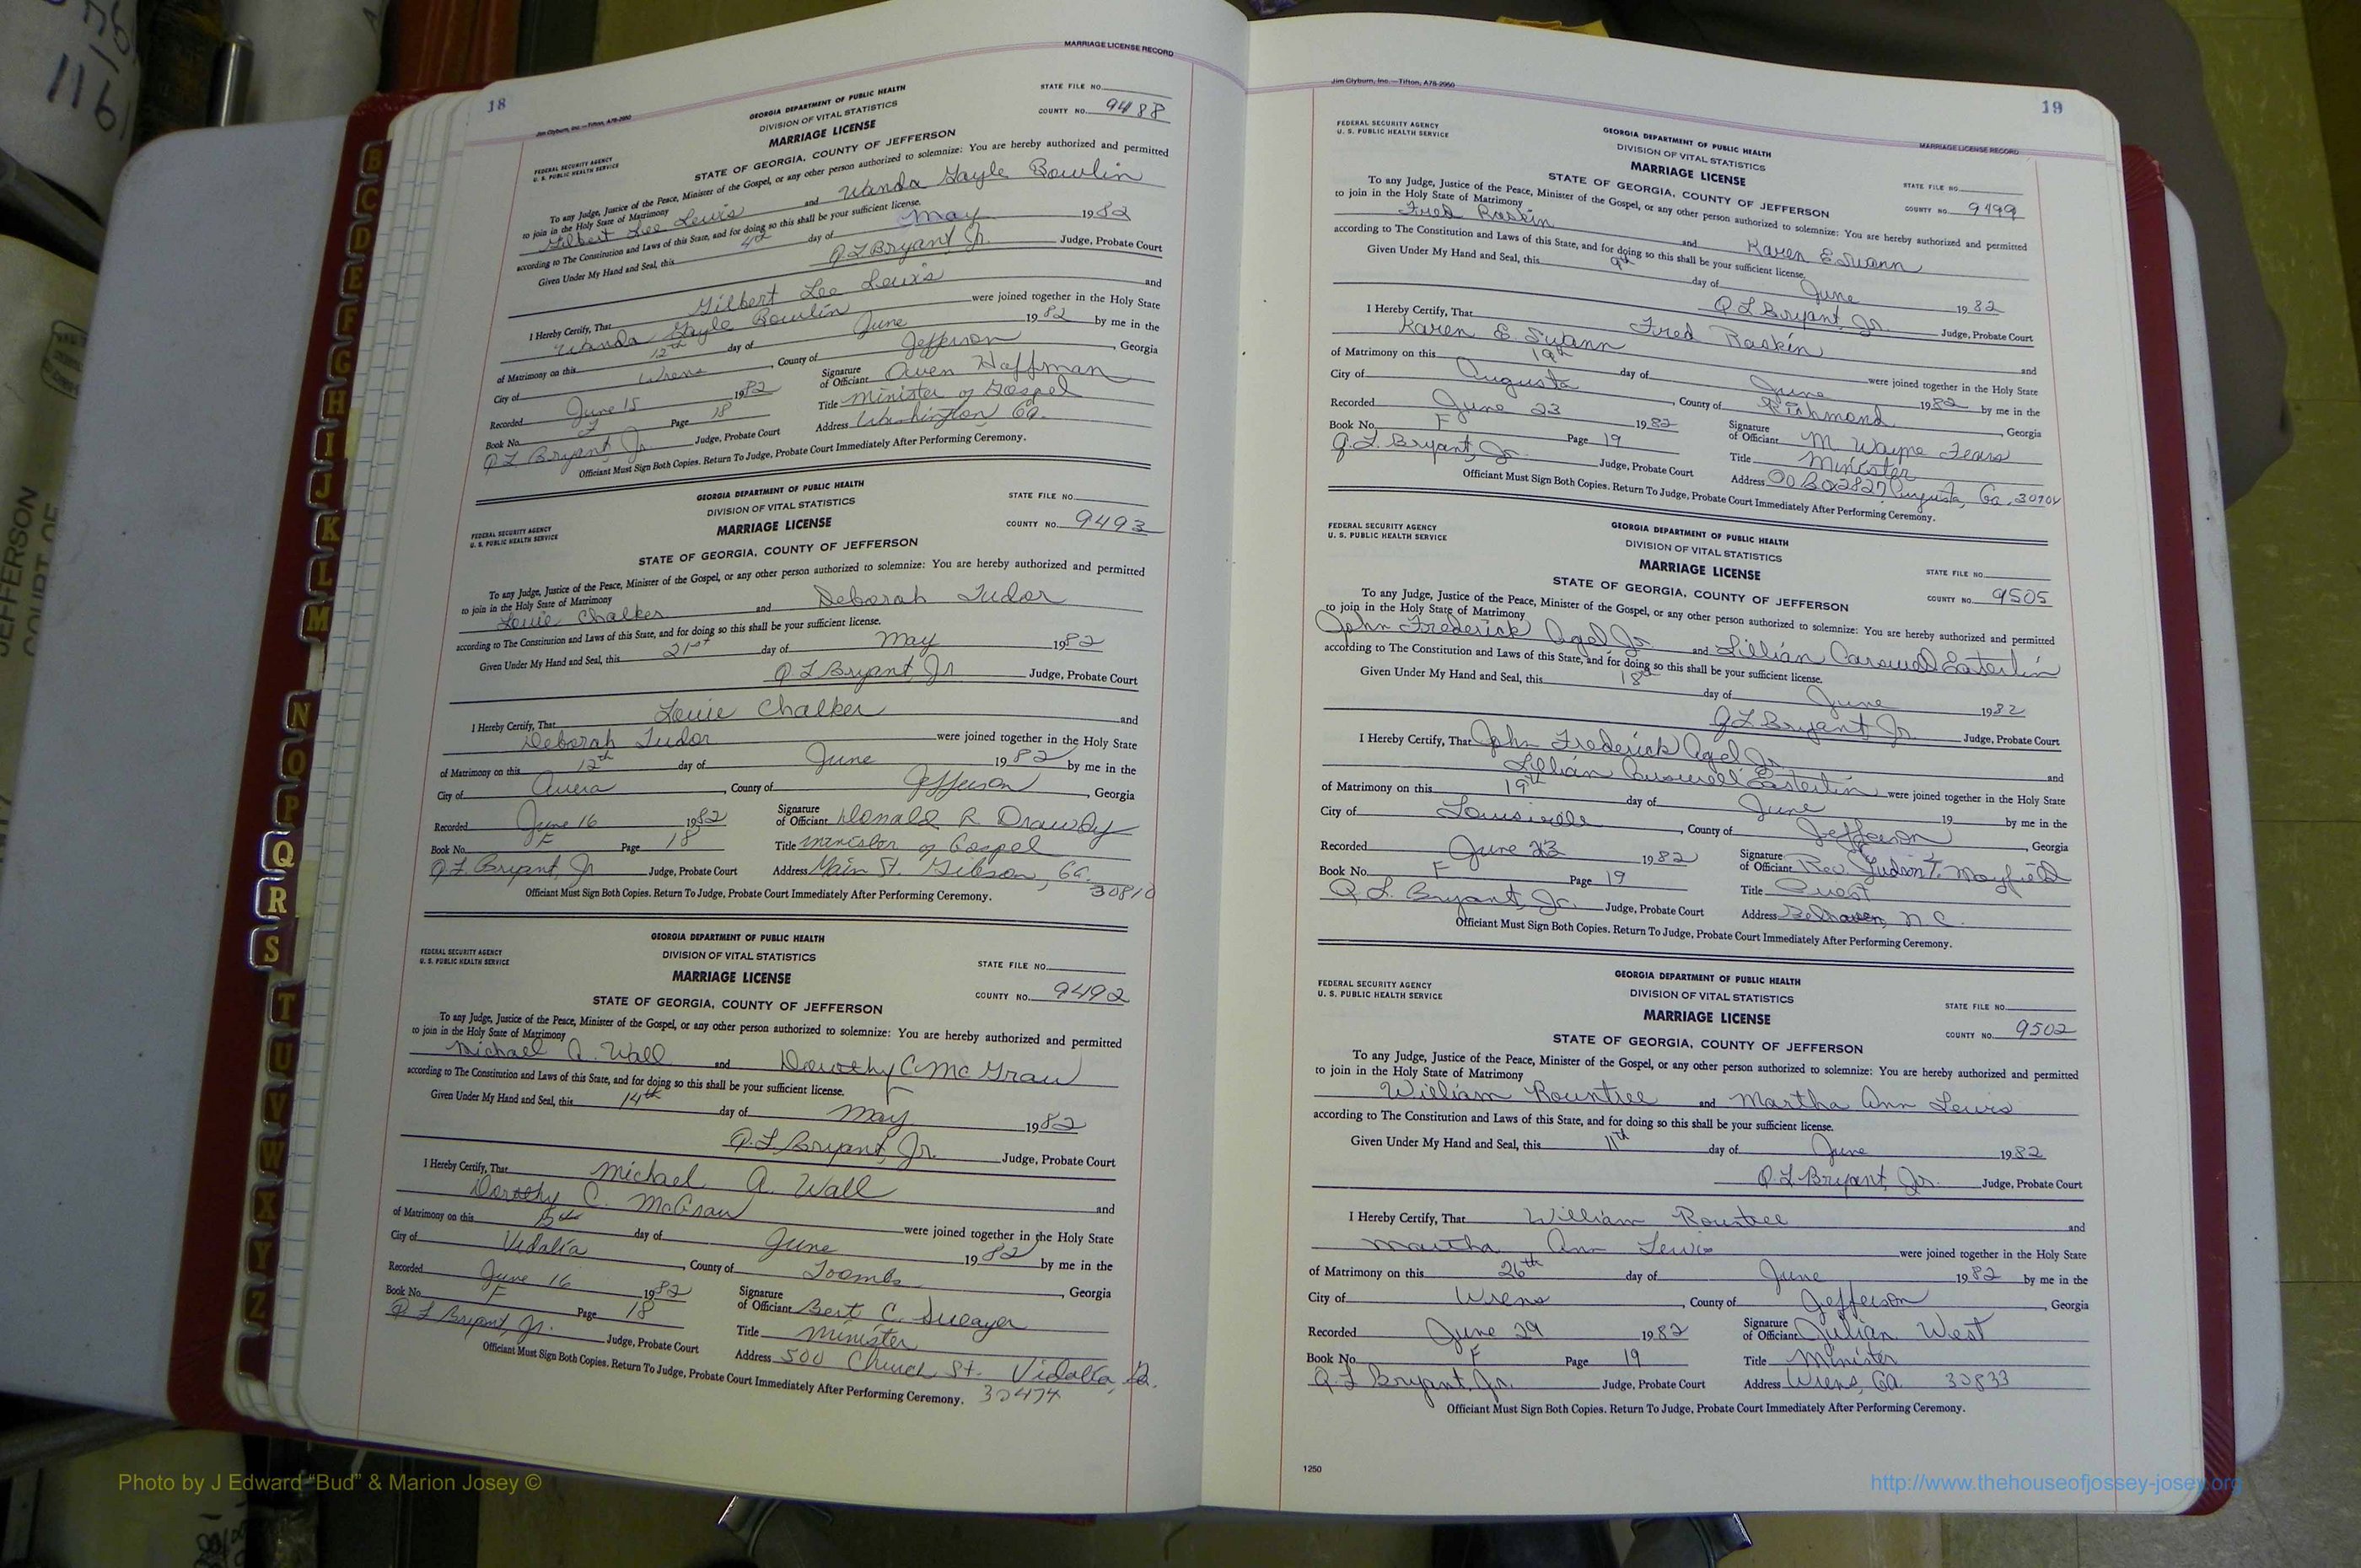 18
MARRIAGE LICENSE RECORD
Jim Clyburn, Inc.—Tifton, A78-2950
GEORGIA DEPARTMENT OF PUBLIC HEALTH
STATE FILE NO.
DIVISION OF VITAL STATISTICS
COUNTY NO. 9488
FEDERAL SECURITY AGENCY
U. S. PUBLIC HEALTH SERVICE
MARRIAGE LICENSE
STATE OF GEORGIA, COUNTY OF JEFFERSON
To any Judge, Justice of the Peace, Minister of the Gospel, or any other person authorized to solemnize: You are hereby authorized and permitted
to join in the Holy State of Matrimony
Gilbert Lee Lewis and Wanda Gayle Bowlin
according to The Constitution and Laws of this State, and for doing so this shall be your sufficient license.
Given Under My Hand and Seal, this 4th day of May 1982
Q L Bryant, Jr. Judge, Probate Court
I Hereby Certify, That Gilbert Lee Lewis and
Wanda Gayle Bowlin were joined together in the Holy State
of Matrimony on this 12th day of June 1982 by me in the
City of Wrens, County of Jefferson, Georgia
Recorded June 15 1982 Signature of Officiant Owen Hoffman
Book No. F Page 18 Title Minister of Gospel
Q L Bryant, Jr. Judge, Probate Court Address Washington Ga.
Officiant Must Sign Both Copies. Return To Judge, Probate Court Immediately After Performing Ceremony.
GEORGIA DEPARTMENT OF PUBLIC HEALTH
STATE FILE NO.
DIVISION OF VITAL STATISTICS
COUNTY NO. 9493
FEDERAL SECURITY AGENCY
U. S. PUBLIC HEALTH SERVICE
MARRIAGE LICENSE
STATE OF GEORGIA, COUNTY OF JEFFERSON
To any Judge, Justice of the Peace, Minister of the Gospel, or any other person authorized to solemnize: You are hereby authorized and permitted
to join in the Holy State of Matrimony
Louie Chalker and Deborah Tudor
according to The Constitution and Laws of this State, and for doing so this shall be your sufficient license.
Given Under My Hand and Seal, this 21st day of May 1982
Q L Bryant, Jr Judge, Probate Court
I Hereby Certify, That Louie Chalker and
Deborah Tudor were joined together in the Holy State
of Matrimony on this 12th day of June 1982 by me in the
City of Avera, County of Jefferson, Georgia
Recorded June 16 1982 Signature of Officiant Donald R Drawdy
Book No. F Page 18 Title Minister of Gospel
Q L Bryant, Jr Judge, Probate Court Address Main St. Gibson, Ga. 30810
Officiant Must Sign Both Copies. Return To Judge, Probate Court Immediately After Performing Ceremony.
GEORGIA DEPARTMENT OF PUBLIC HEALTH
FEDERAL SECURITY AGENCY
U. S. PUBLIC HEALTH SERVICE
DIVISION OF VITAL STATISTICS
STATE FILE NO.
MARRIAGE LICENSE
COUNTY NO. 9492
STATE OF GEORGIA, COUNTY OF JEFFERSON
To any Judge, Justice of the Peace, Minister of the Gospel, or any other person authorized to solemnize: You are hereby authorized and permitted
to join in the Holy State of Matrimony
Michael A. Wall and Dorothy C McGraw
according to The Constitution and Laws of this State, and for doing so this shall be your sufficient license.
Given Under My Hand and Seal, this 14th day of May 1982
Q. L Bryant, Jr. Judge, Probate Court
I Hereby Certify, That Michael A. Wall and
Dorothy C. McGraw were joined together in the Holy State
of Matrimony on this day of June 1982 by me in the
City of Vidalia, County of Toombs, Georgia
Recorded June 16 1982 Signature of Officiant Bert C.
Book No. F Page 18 Title Minister
Q L Bryant, Jr. Judge, Probate Court Address 500 Church St. Vidalia, Ga.
Officiant Must Sign Both Copies. Return To Judge, Probate Court Immediately After Performing Ceremony. 30474
19
Jim Clyburn, Inc.—Tifton, A78-2950
MARRIAGE LICENSE RECORD
FEDERAL SECURITY AGENCY
U. S. PUBLIC HEALTH SERVICE
GEORGIA DEPARTMENT OF PUBLIC HEALTH
DIVISION OF VITAL STATISTICS
MARRIAGE LICENSE
STATE FILE NO.
STATE OF GEORGIA, COUNTY OF JEFFERSON
COUNTY NO. 9499
To any Judge, Justice of the Peace, Minister of the Gospel, or any other person authorized to solemnize: You are hereby authorized and permitted
to join in the Holy State of Matrimony
Fred Raskin and Karen E Swann
according to The Constitution and Laws of this State, and for doing so this shall be your sufficient license.
Given Under My Hand and Seal, this 9th day of June 1982
Q L Bryant, Jr. Judge, Probate Court
I Hereby Certify, That Fred Raskin and
Karen E. Swann were joined together in the Holy State
of Matrimony on this 19th day of June 1982 by me in the
City of Augusta, County of Richmond, Georgia
Recorded June 23 1982 Signature of Officiant M. Wayne Fears
Book No. F Page 19 Title Minister
Q. L. Bryant, Jr. Judge, Probate Court Address PO Box 2827 Augusta, Ga.
Officiant Must Sign Both Copies. Return To Judge, Probate Court Immediately After Performing Ceremony.
FEDERAL SECURITY AGENCY
U. S. PUBLIC HEALTH SERVICE
GEORGIA DEPARTMENT OF PUBLIC HEALTH
DIVISION OF VITAL STATISTICS
MARRIAGE LICENSE
STATE FILE NO.
STATE OF GEORGIA, COUNTY OF JEFFERSON
COUNTY NO. 9505
To any Judge, Justice of the Peace, Minister of the Gospel, or any other person authorized to solemnize: You are hereby authorized and permitted
to join in the Holy State of Matrimony
John Frederick Agel Jr. and Lillian Carswell Easterlin
according to The Constitution and Laws of this State, and for doing so this shall be your sufficient license.
Given Under My Hand and Seal, this 18th day of June 1982
Q L Bryant, Jr. Judge, Probate Court
I Hereby Certify, That John Frederick Agel Jr. and
Lillian Carswell Easterlin were joined together in the Holy State
of Matrimony on this 19th day of June 19 by me in the
City of Louisville, County of Jefferson, Georgia
Recorded June 23 1982 Signature of Officiant Rev. Judson T. Mayfield
Book No. F Page 19 Title
Q. L. Bryant, Jr. Judge, Probate Court Address Belhaven, N.C.
Officiant Must Sign Both Copies. Return To Judge, Probate Court Immediately After Performing Ceremony.
FEDERAL SECURITY AGENCY
U. S. PUBLIC HEALTH SERVICE
GEORGIA DEPARTMENT OF PUBLIC HEALTH
DIVISION OF VITAL STATISTICS
STATE FILE NO.
MARRIAGE LICENSE
COUNTY NO. 9502
STATE OF GEORGIA, COUNTY OF JEFFERSON
To any Judge, Justice of the Peace, Minister of the Gospel, or any other person authorized to solemnize: You are hereby authorized and permitted
to join in the Holy State of Matrimony
William Rountree and Martha Ann Lewis
according to The Constitution and Laws of this State, and for doing so this shall be your sufficient license.
Given Under My Hand and Seal, this 11th day of June 1982
Q. L Bryant, Jr. Judge, Probate Court
I Hereby Certify, That William Rountree and
Martha Ann Lewis were joined together in the Holy State
of Matrimony on this 26th day of June 1982 by me in the
City of Wrens, County of Jefferson, Georgia
Recorded June 29 1982 Signature of Officiant Julian West
Book No. F Page 19 Title Minister
Q. L Bryant, Jr. Judge, Probate Court Address Wrens, Ga. 30833
Officiant Must Sign Both Copies. Return To Judge, Probate Court Immediately After Performing Ceremony.
1250
B
C
D
E
F
G
H
I
J
K
L
M
N
O
P
Q
R
S
T
U
V
W
X
Y
Z
JEFFERSON
COURT OF
Photo by J Edward “Bud” & Marion Josey ©
http://www.thehouseofjossey-josey.org